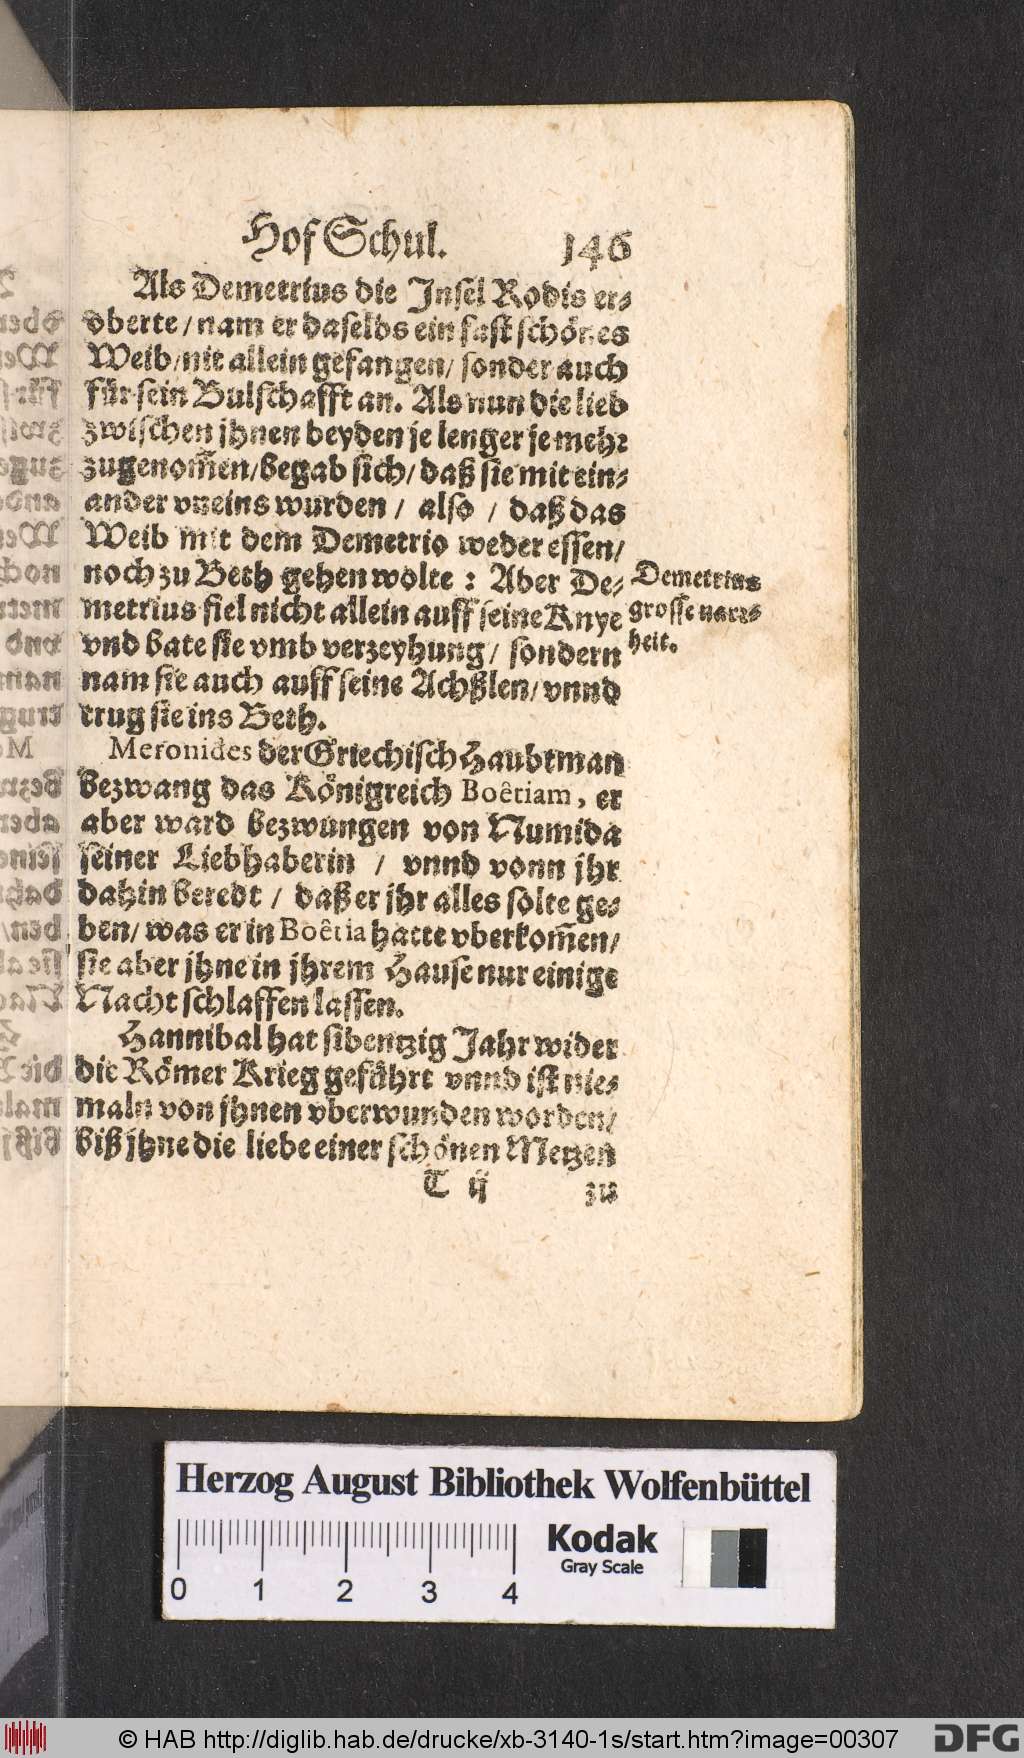 Hof Schul. 146
Als Demetrius die Insel Rodis er-
oberte / nam er daselbs ein fast schönes
Weib / nit allein gefangen / sonder auch
für sein Bulschafft an. Als nun die lieb
zwischen jhnen beyden je lenger je mehr
zugenom̃en / begab sich / daß sie mit ein-
ander vneins wurden / also / daß das
Weib mit dem Demetrio weder essen /
noch zu Beth gehen wolte : Aber De-
metrius fiel nicht allein auff seine Knye
vnd bate sie vmb verzeyhung / sondern
nam sie auch auff seine Achßlen / vnnd
trug sie ins Beth.
Demetrius
grosse narr-
heit.
Meronides der Griechisch Haubtman
bezwang das Königreich Boêtiam, er
aber ward bezwungen von Numida
seiner Liebhaberin / vnnd vonn jhr
dahin beredt / daß er jhr alles solte ge-
ben / was er in Boêtia hatte vberkom̃en /
sie aber jhne in jhrem Hause nur einige
Nacht schlaffen lassen.
Hannibal hat sibentzig Jahr wider
die Römer Krieg geführt vnnd ist nie-
maln von jhnen vberwunden worden /
biß jhne die liebe einer schönen Metzen
T ij zu
Herzog August Bibliothek Wolfenbüttel
Kodak
Gray Scale
0 1 2 3 4
© HAB http://diglib.hab.de/drucke/xb-3140-1s/start.htm?image=00307
DFG